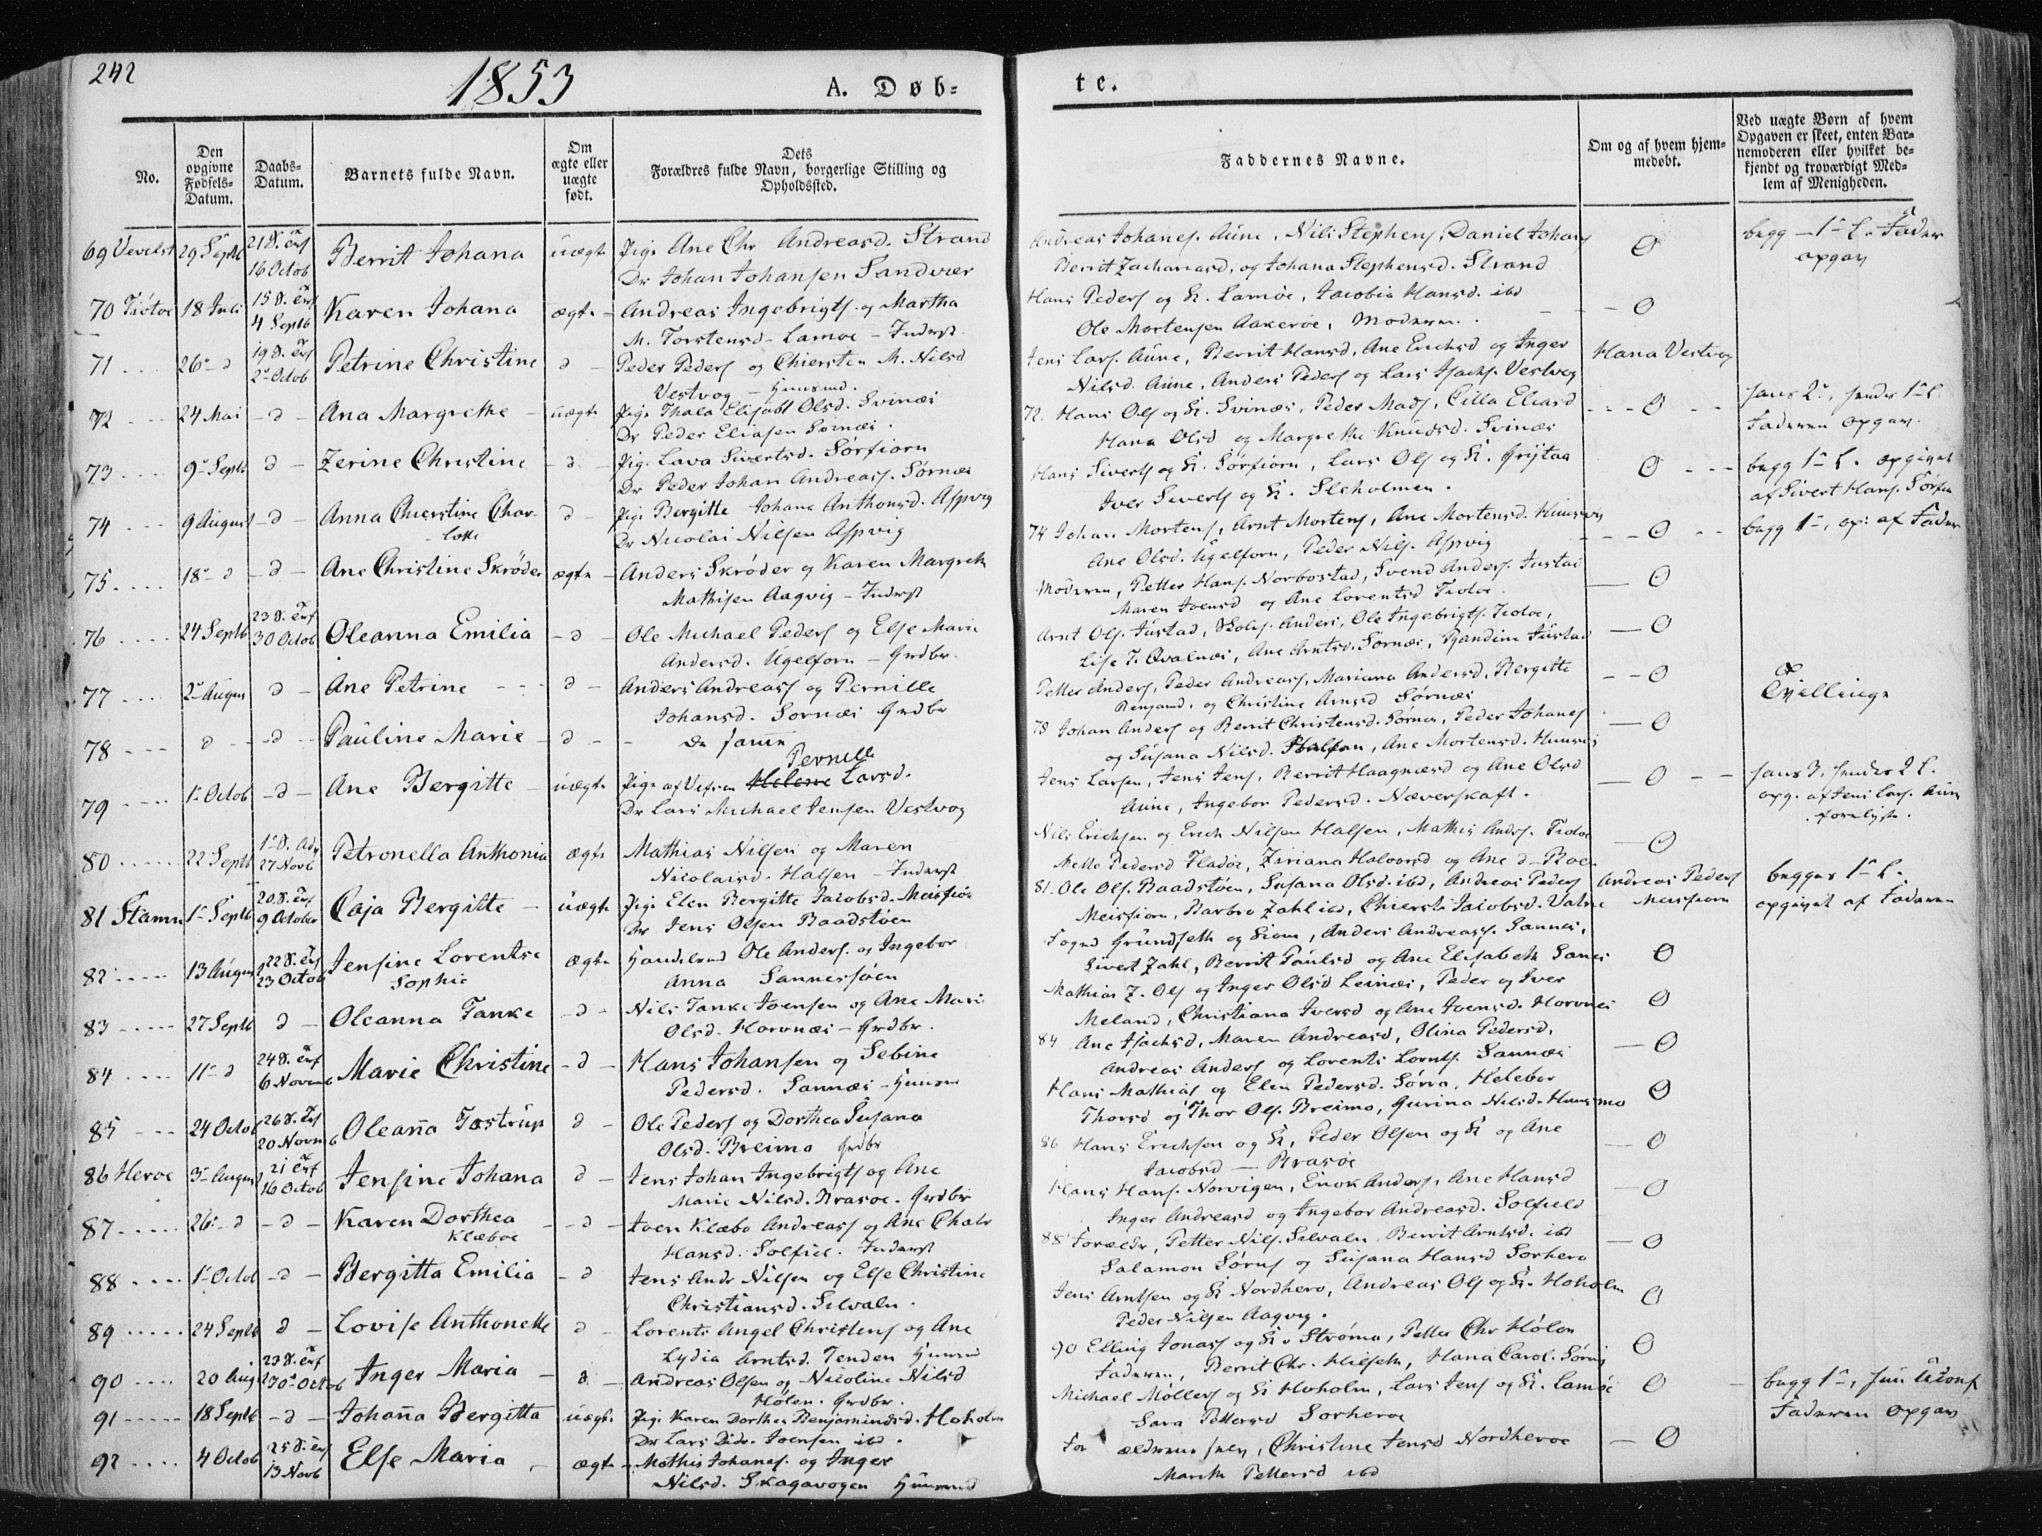 242
1853
A. Døb-
te.
No.
Den opgivne Fødsels-Datum.
Daabs-Datum.
Barnets fulde Navn.
Om ægte eller uægte født.
Dets Forældres fulde Navn, borgerlige Stilling og Opholdssted.
Faddernes Navne.
Om og af hvem hjem-medøbt.
Ved uægte Børn af hvem Opgaven er skeet, enten Bar-nemoderen eller hvilket be-kjendt og troværdigt Med-lem af Menigheden.
69 29 Septb 16 Octob Berrit Johana uægte Pige Ane Chr Andreasd. Strand
Dr Johan Johansen Sandvær
Andreas Johanes. Aune, Nils Stephens, Daniel Johans
Berrit Zachariasd, og Johana Stephensd. Strand
70 18 Juli 4 Septb Karen Johana ægte Andreas Ingebrigts. og Martha
M. Torstensd. Lamøe - Inderst
Hans Peders og K. Lamøe, Jacobia Hansd. ibd
Ole Mortensen Aakerøe, Moderen.
71 26 d 2 Octob Petrine Christine d Peder Peders og Chiersten M. Nilsd
Vestvog - Huusmd.
Jens Lars. Aune, Berrit Hansd, Ane Erichsd og Inger
Nilsd. Aune, Anders Peders og Lars Isachs. Vestvog
Hana Vestvog
72 24 Mai d Ana Margrethe uægte Pige Thala Elisabt Olsd. Svinæs
Dr Peder Eliasen Sørnæs.
72. Hans Ols og K. Svinæs, Peder Mads, Cilla Eliasd
Hana Olsd og Margrethe Knudsd. Svinæs
hans 2, hendes 1 L.
Faderen opgav.
73 9 Septb d Zerine Christine d Pige Lava Sivertsd. Sørfiorn
Dr Peder Johan Andreass. Sørnæs
Hans Siverts og K. Sørfiorn, Lars Ols og K. Grytaa
Iver Siverts og K. Sleholmen.
begg 1 L. opgivet
af Sivert Hans. Sørfiorn
74 9 August d Anna Chierstine Char-lotte d Pige Bergitte Johana Anthonsd. Aspvig
Dr Nicolai Nilsen Aspvig
74 Johan Mortens, Arnt Mortens, Ane Mortensd. Huusvig
Ane Olsd. Ugelforn, Peder Nils. Aspvig
begg 1, op: af Faderen
75 18 d d Ane Christine Skrøder ægte Anders Skrøder og Karen Margreth
Mathisen Aagvig - Inderst
Moderen, Petter Hans. Norbostad, Svend Anders. Justad
Maren Joensd og Ane Lorentsd Tiøtøe.
76 24 Septb 30 Octob Oleanna Emilia d Ole Michael Peders og Else Marie
Andersd. Ugelforn - Grdbr.
Arnt Ols. Justad, Anders, Ole Ingebrigts. Tiøtøe,
Lise T. Qvalnæs, Ane Arntsd. Sørnæs, Bandine Justad
77 2 August d Ane Petrine d Anders Andreass og Pernille
Johansd. Sørnæs Grdbr
Petter Anders, Peder Andreass, Mariana Andersd, Bergitte
Benjamd, og Christine Arnsd Sørnæs
Tvillinge
78 d d Pauline Marie d De samme
78 Johan Anders og Berrit Christensd. Sørnæs, Peder Johanes
og Susana Nilsd. Ane Mortensd. Huusvig
79 1 Octob d Ane Bergitte uægte Pige af Vefsen Helene Pernille Larsd.
Dr Lars Michael Jensen Vestvog
Jens Larsen, Jens Jens, Berrit Haagensd og Ane Olsd
Aune, Ingebor Pedersd. Næverskaft.
hans 3, hendes 2 L.
opg. af Jens Lars. Aune
80 22 Septb 27 Novb Petronella Anthonia ægte Mathias Nilsen og Maren
Nicolaisd. Halsen - Inderst
Nils Erichsen og Erich Nilsen Halsen, Mathis Ands. Tiøtøe
Mette Pedersd Fladøe, Ziriana Halvorsd og Ane d
81 Stamn 1 Septb 9 October Caja Bergitte uægte Pige Elen Bergitte Jacobsd. Meisfiorn
Dr Jens Olsen Baadstøen
81. Ole Ols. Baadstøen, Susana Olsd. ibd, Andreas Peders
Meisfiorn, Barbro Zahl ibd, Chierst. Jacobsd.
Andreas Peders
Meisfiorn
begges 1 L.
opgivet af Faderen
82 13 August 23 Octob Jensine Lorentse
Sophie ægte Handelsmd Ole Anders. og Ingebor
Anna Sannessøen
Fogd Grundseth og Kone, Anders Andreass. Sannes,
Sivert Zahl, Berrit Paulsd og Ane Elisabeth Sanes
83 27 Septb d Oleanna Tanke d Nils Tanke Joensen og Ane Mari
Olsd. Horvnæs - Grdbr.
Mathias Z. Ols og Inger Olsd Leinæs, Peder og Iver
Meland, Christiana Iversd og Ane Joensd. Horvnes
84 11 d 6 Novem Marie Christine d Hans Johansen og Sebine
Pedersd. Sannæs - Huusmd
84 Ane Isachsd, Maren Andreasd, Olina Pedersd,
Andreas Anders og Lorents Lornts. Sannæs
85 24 Octob 20 Novm Oleana Tostrup d Ole Peders og Dorthea Susana
Olsd. Breimo Grdbr
Hans Mathias og Elen Pedersd. Sørra, Helebor
Thorsd og Thor Ols. Breimo, Gurina Nilsd. Huusmo
86 Herøe 3 August 16 Octob Jensine Johana d Jens Johan Ingebrigts og Ane
Marie Nilsd. Brasøe. Grdbr
86 Hans Erichsen og K, Peder Olsen og K og Ane
Jacobsd - Brasøe
87 26 d d Karen Dorthea
Klæboe d Joen Klæbo Andreass og Ane Chatr
Hansd. Solfiel. Inderst
Hans Hans. Norvigen, Enok Anders, Ane Hansd
Inger Andreasd og Ingebor Andreasd. Solfield
88 1 Octob d Bergitta Emilia d Jens Andr Nilsen og Else Christine
Christiansd. Silvaln.
88 Forældr, Petter Nils. Silvaln, Berrit Arntsd. ibd
Salamon Sørns og Susana Hansd Sørherø
89 24 Septb d Lovise Anthonette d Lorents Angel Christens og Ane
Lydia Arntsd. Tenden Huusmd
Jens Arntsen og K Nordherø, Andreas Ols og K. Hoholm
Peder Nilsen Aagvig.
90 20 Aug 30 Octob Inger Maria d Andreas Olsen og Nicoline Nilsd
Hølen. Grdbr.
90 Elling Jonass og K. Strømø, Petter Chr Hølen
Faderen, Berrit Chr. Hilseth, Hana Carol. Sørvig
91 18 Septb d Johana Bergitta uægte Pige Karen Dorthea Benjaminsd. Hoholm
Dr Lars Didr. Joensen ibd.
Michael Møllers og K Hoholm, Lars Jens og K. Lamøe
Sara Pettersd Sørherøe
begg 1,
Faderen opgav
92 4 Octob 13 Novb Else Maria ægte Mathis Johanes. og Inger
Nilsd. Skagavogen Huusmd
Forældrene selv, Christine Jensd Nordherøe
Marith Pettersd ibd